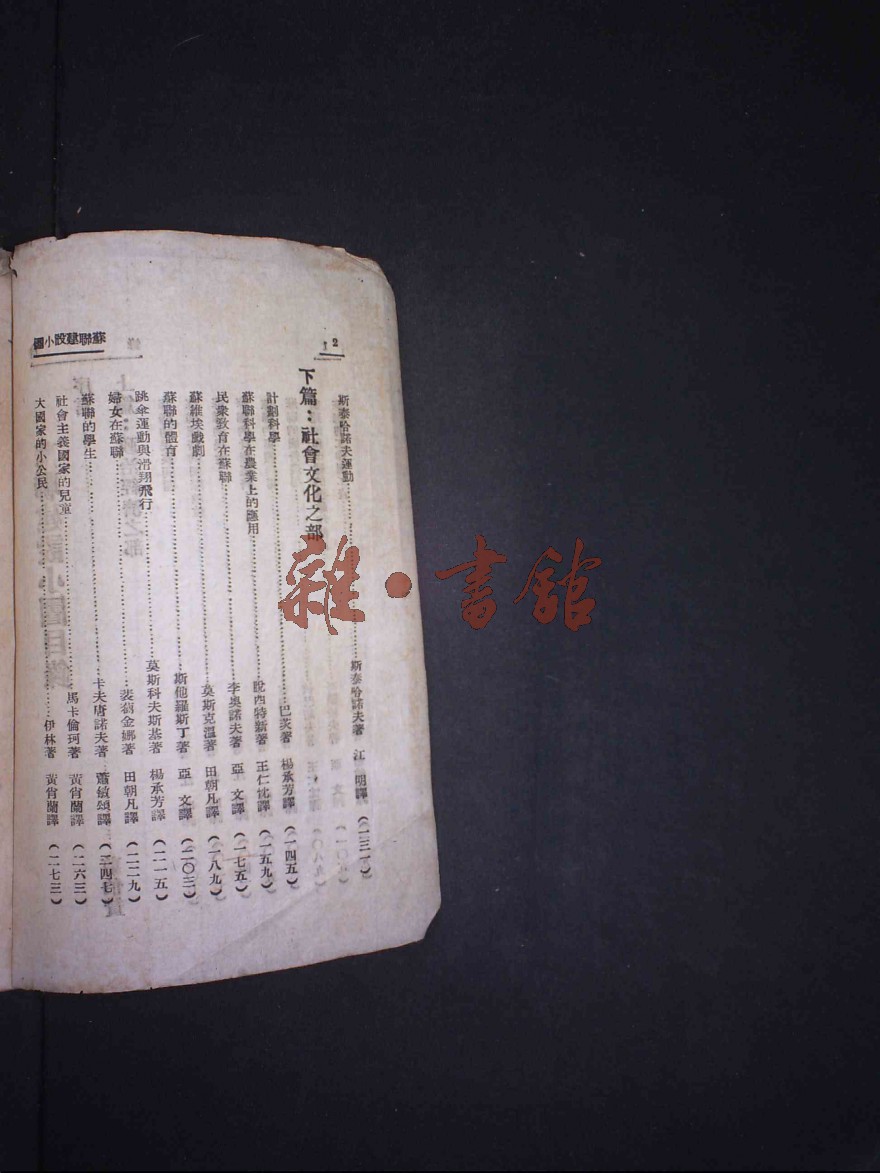 2
蘇聯建設小圖
斯泰哈諾夫運動……斯泰哈諾夫著 江明譯 （一三一）
下篇：社會文化之部
計劃科學……巴茨著 楊承芳譯 （一四五）
蘇聯科學在農業上的應用……說內特新著 王仁忱譯 （一五九）
民衆教育在蘇聯……李奧諾夫著 亞文譯 （一七五）
蘇維埃戲劇……莫斯克溫著 田朝凡譯 （一八九）
蘇聯的體育……斯他羅斯丁著 亞文譯 （二〇三）
跳傘運動與滑翔飛行……莫斯科夫斯基著 楊承芳譯 （二一五）
婦女在蘇聯……裴窮金娜著 田朝凡譯 （二二九）
蘇聯的學生……卡夫唐諾夫著 蕭敏頌譯 （二四七）
社會主義國家的兒童……馬卡倫珂著 黃肯蘭譯 （二六三）
大國家的小公民……伊林著 黃肯蘭譯 （二七三）
雜·書館